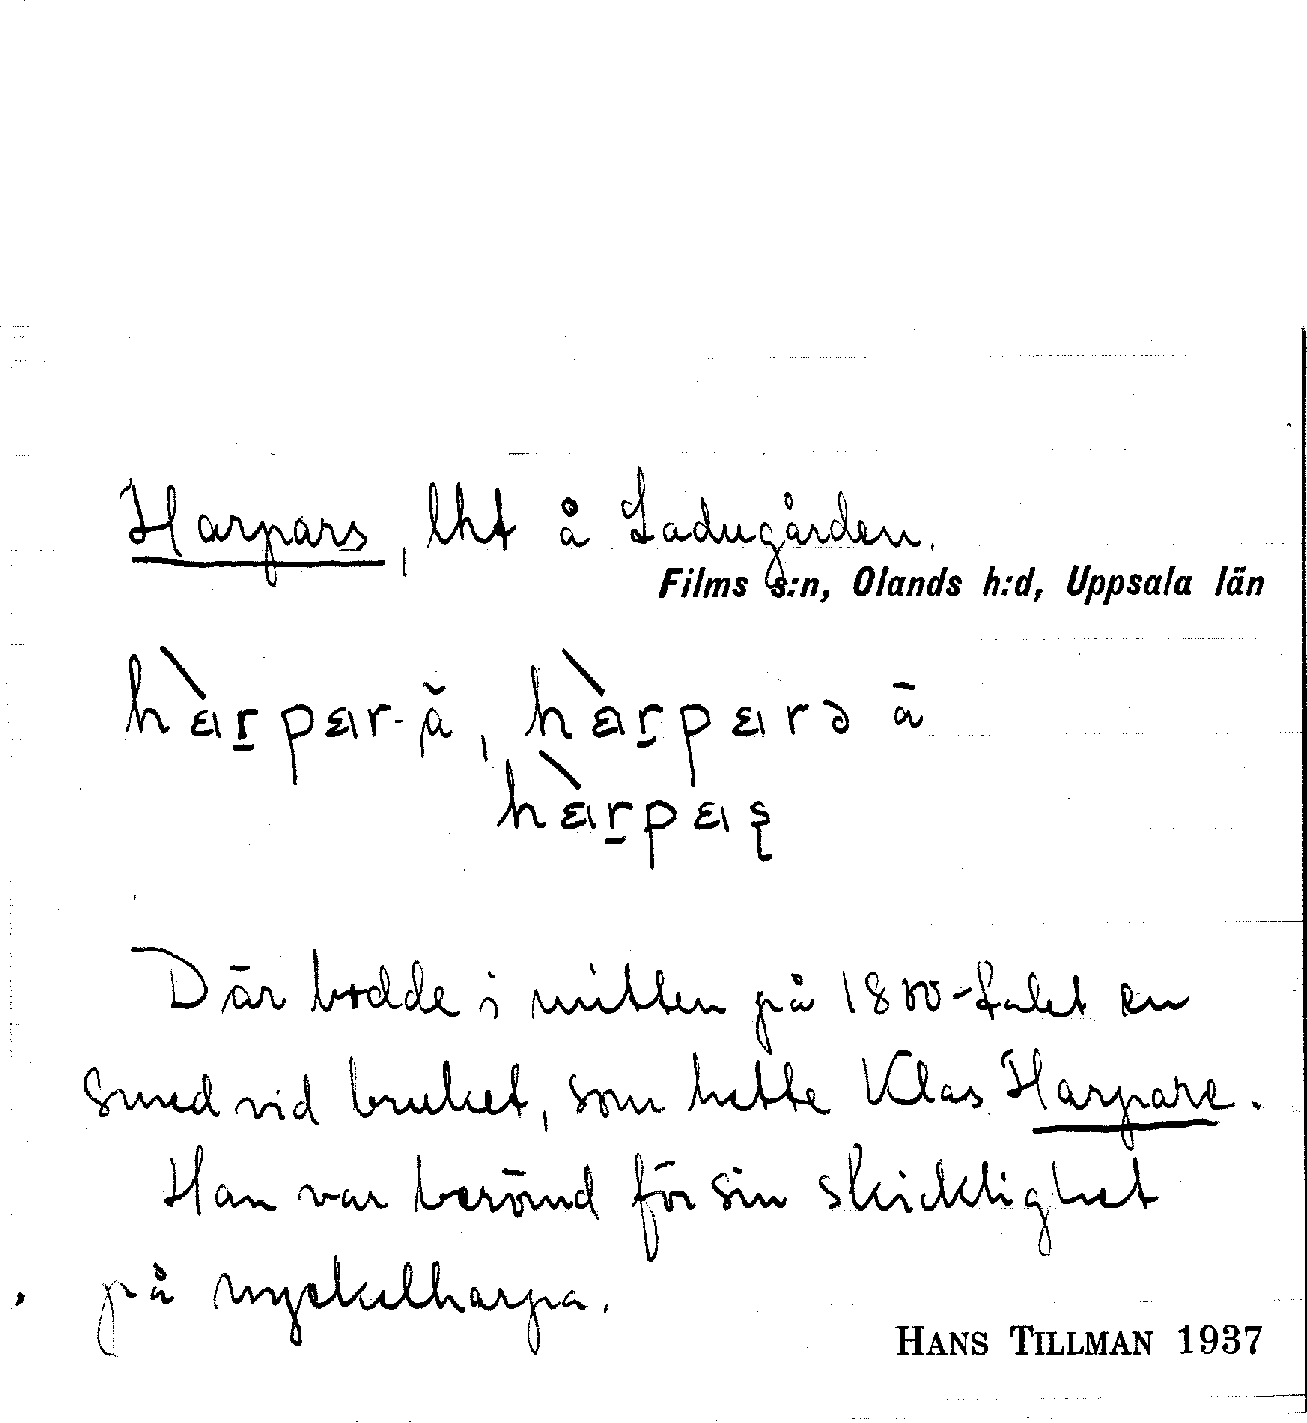 Harpars, lht å Ladugården.
Films s:n, Olands h:d, Uppsala län
hàr̠par-ă, hàr̠parə ā
hàr̠paʂ
Där bodde i mitten på 1800-talet en
smed vid bruket, som hette Klas Harpare.
Han var berömd för sin skicklighet
på nyckelharpa.
HANS TILLMAN 1937